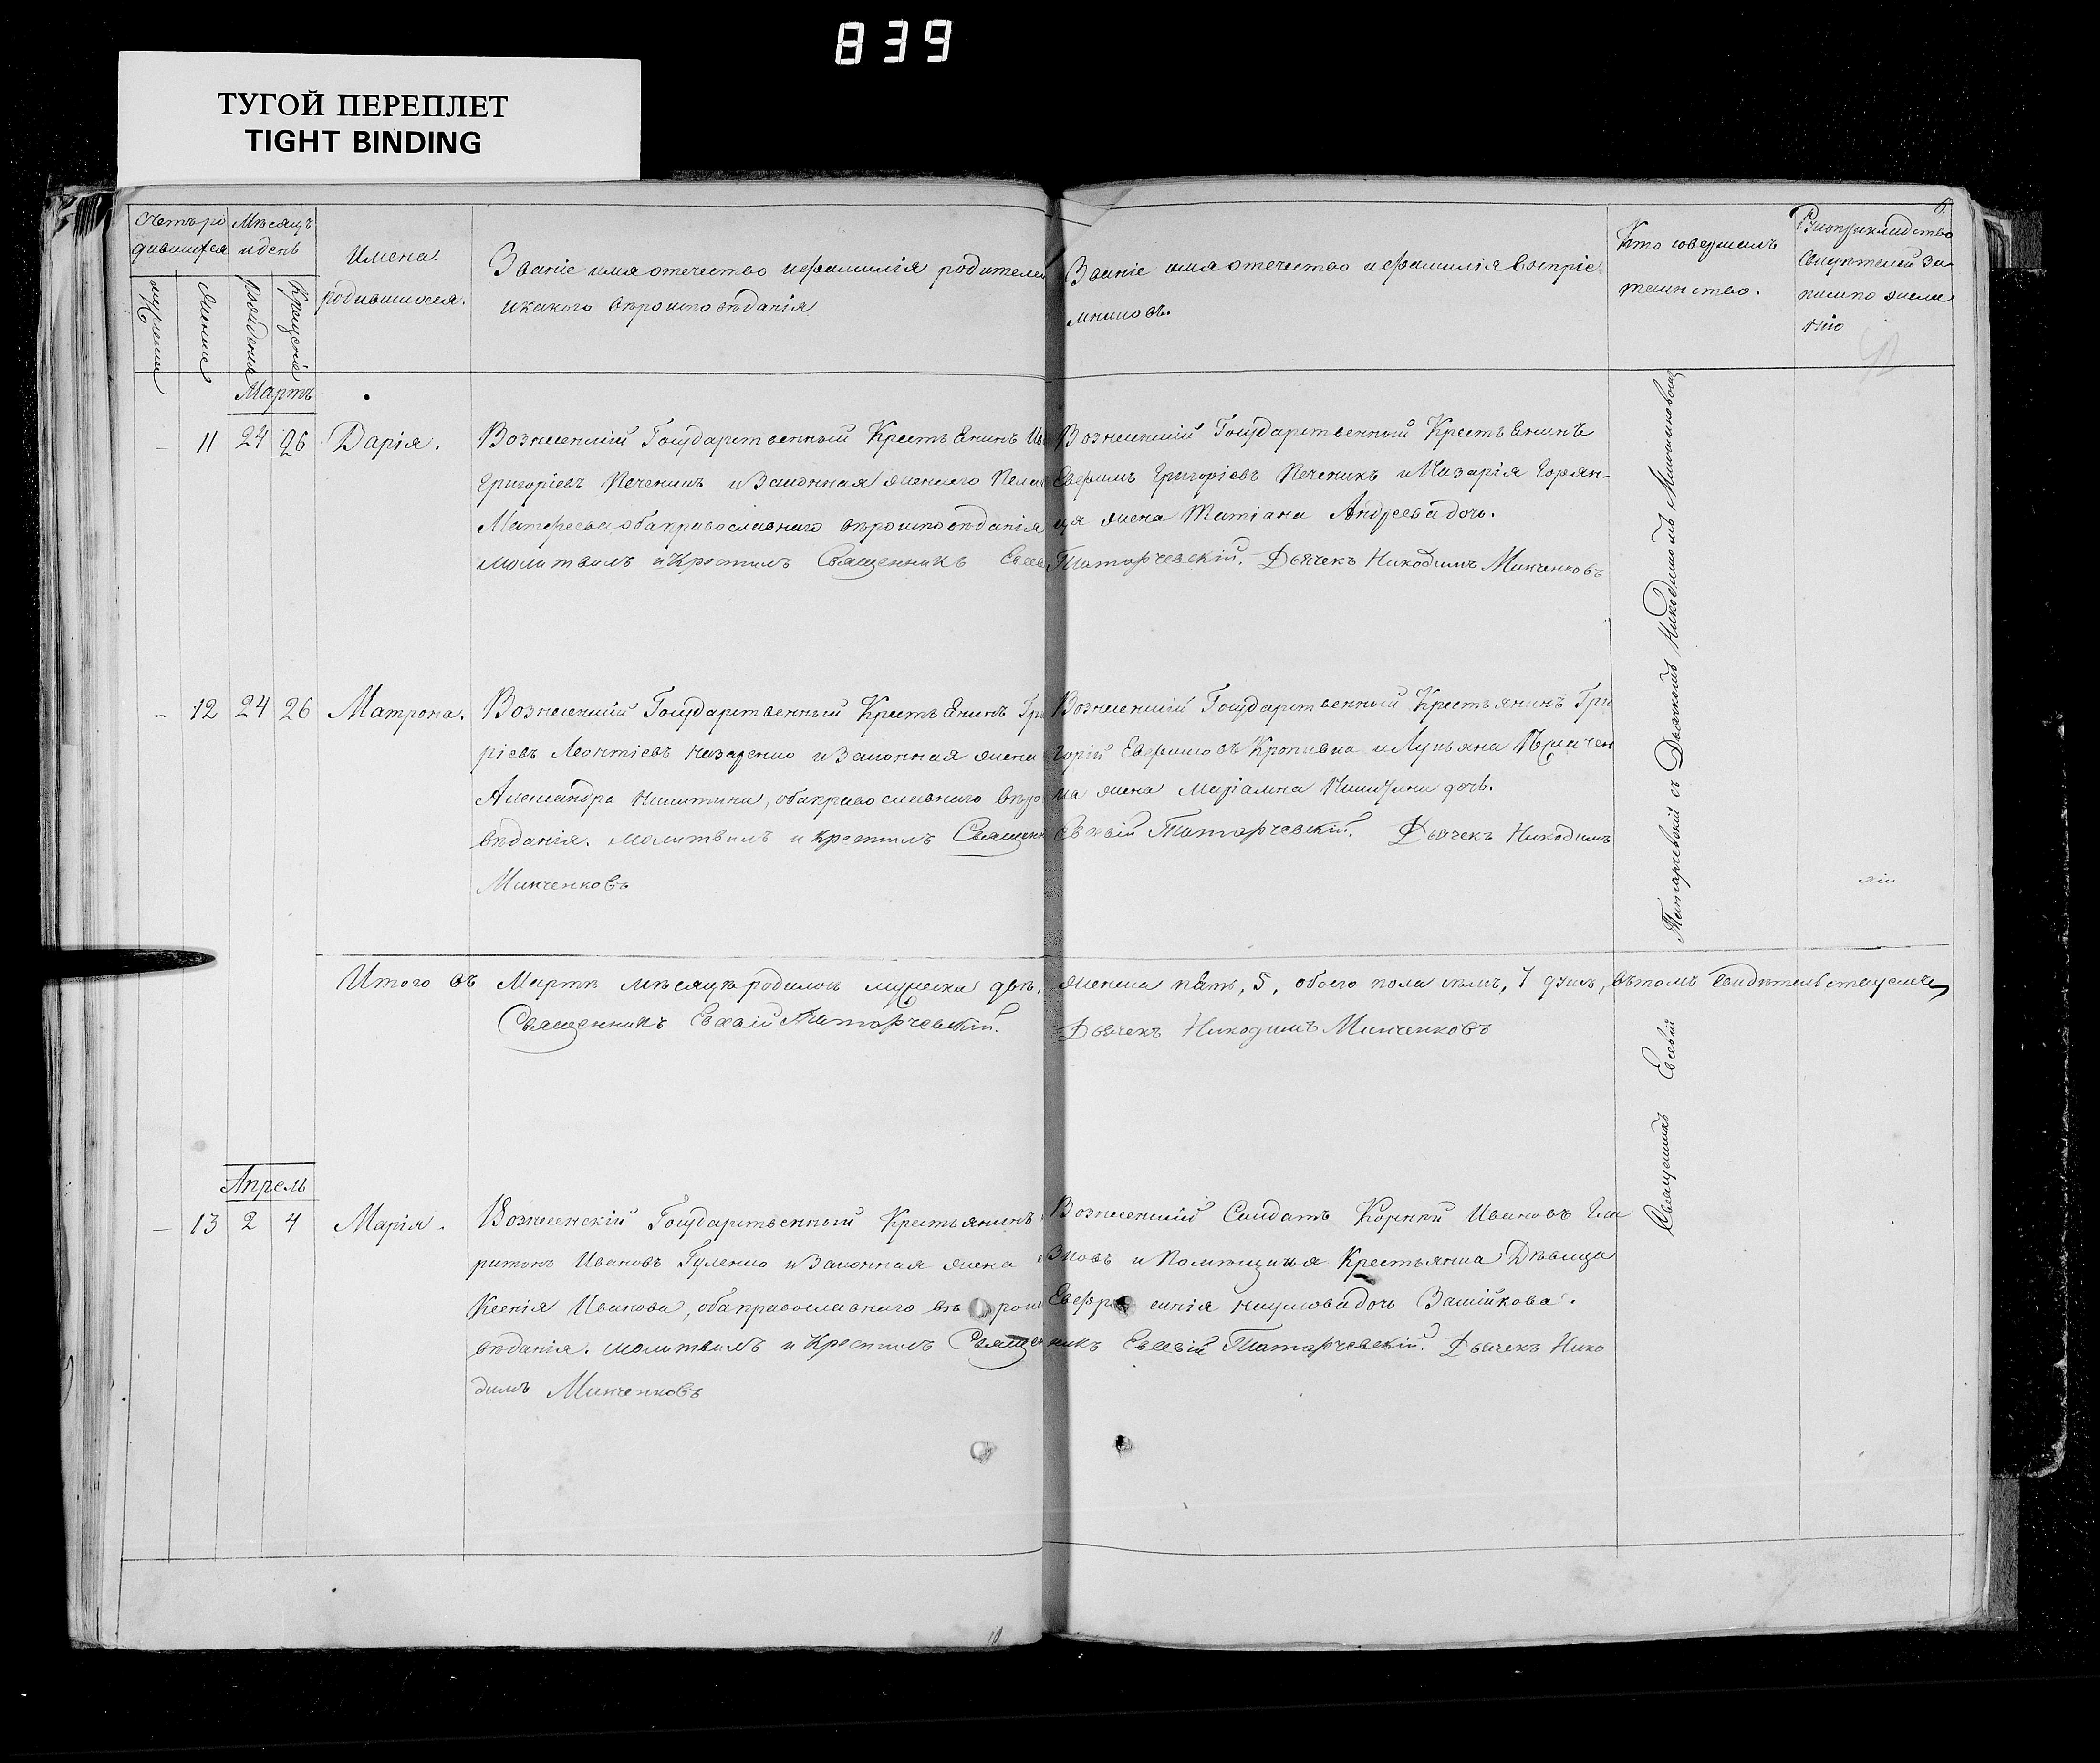 839
ТУГОЙ ПЕРЕПЛЕТ
TIGHT BINDING
6.
Счетъ ро
дившихся
Мѣсяцъ
и день
мужеска
женска
Рожденія
Крещенія
Имена
родившихся.
Званіе имя отечество и фамилія родителей
и какого вѣроисповѣданія
Званіе имя отечество и фамилія воспріе
мниковъ.
Кто совершалъ
таинство.
Рукоприкладство
свидѣтелей за
писи по жела
нію
Мартъ
- 11 24 26 Дарія.
Вознесенскій Государственный Крестьянинъ
Григорьевъ Печеникъ и Законная жена его
Матфеева оба православнаго вѣроисповѣданія
молитвилъ и крестилъ Священникъ Евсев
Вознесенскій Государственный Крестьянинъ
Евфимъ Григорьевъ Печеникъ и Назарія Горян-
ца жена Татіана Андреева дочь.
Татарчевскій. Дьячекъ Никодимъ Минченковъ
- 12 24 26 Матрона.
Вознесенскій Государственный Крестьянинъ Гри
ріевъ Леонтіевъ Назаренко и Законная жена
Александра Никитина, оба православнаго вѣро
вѣданія. молитвилъ и крестилъ Священн
Минченковъ
Вознесенскій Государственный Крестьянинъ Гри
горій Евфимовъ Кропивка и Лукьяна
ка жена Маріамна Никитина дочь.
Евсевій Татарчевскій. Дьячекъ Никодимъ
Итого въ Мартѣ мѣсяцѣ родилось мужеска двѣ, женска пять, 5, обоего пола семь, 7 душъ, въ томъ свидѣтельствуемъ
Священникъ Евсевій Татарчевскій. Дьячекъ Никодимъ Минченковъ
Апрель
- 13 2 4 Марія.
Вознесенскій Государственный Крестьянинъ
ритонъ Ивановъ Гуленко и Законная жена
Ксенія Иванова, оба православнаго вѣроис
вѣданія. молитвилъ и крестилъ Священ
димъ Минченковъ
Вознесенскій Солдатъ Корнѣй Ивановъ
и Помѣщичья Крестьянка Дѣвица
Евфросинія Наумова дочь Зашійкова.
никъ Евсевій Татарчевскій. Дьячекъ Нико
Священникъ Евсевій Татарчевскій съ Дьячкомъ Никодимомъ Минченковымъ